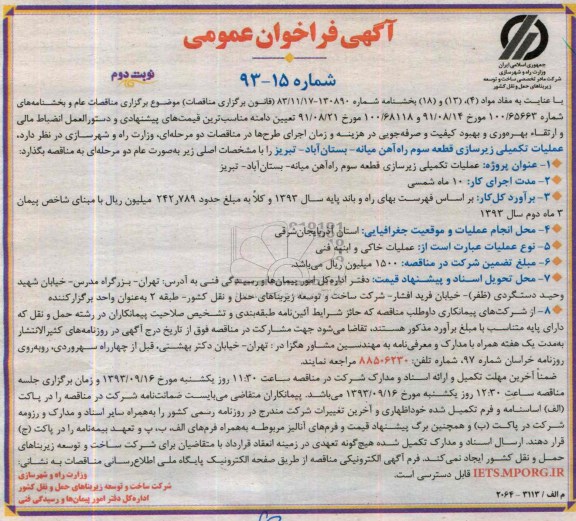 جمهوری اسلامی ایران
وزارت راه و شهرسازی
شرکت مادر تخصصی ساخت و توسعه
زیربناهای حمل و نقل کشور
آگهی فراخوان عمومی
شماره ۱۵-۹۳
نوبت دوم
با عنایت به مفاد مواد (۴)، (۱۳) و (۱۸) بخشنامه شماره ۱۳۰۸۹۰-۸۳/۱۱/۱۷ (قانون برگزاری مناقصات) موضوع برگزاری مناقصات عام و بخشنامه‌های
شماره ۱۰۰/۶۵۶۶۳ مورخ ۹۱/۰۸/۱۴ و ۱۰۰/۶۸۱۱۸ مورخ ۹۱/۰۸/۲۱ تعیین دامنه مناسب‌ترین قیمت‌های پیشنهادی و دستورالعمل انضباط مالی
و ارتقاء بهره‌وری و بهبود کیفیت و صرفه‌جویی در هزینه و زمان اجرای طرح‌ها در مناقصات دو مرحله‌ای، وزارت راه و شهرسازی در نظر دارد،
عملیات تکمیلی زیرسازی قطعه سوم راه‌آهن میانه- بستان‌آباد- تبریز را با مشخصات اصلی زیر به‌صورت عام دو مرحله‌ای به مناقصه بگذارد:
۱- عنوان پروژه: عملیات تکمیلی زیرسازی قطعه سوم راه‌آهن میانه- بستان‌آباد- تبریز
۲- مدت اجرای کار: ۱۰ ماه شمسی
۳- برآورد کل‌کار: بر اساس فهرست بهای راه و باند پایه سال ۱۳۹۳ و کلاً به مبلغ حدود ۲۴۲,۷۸۹ میلیون ریال با مبنای شاخص پیمان
۳ ماه دوم سال ۱۳۹۳
۴- محل انجام عملیات و موقعیت جغرافیایی: استان آذربایجان‌شرقی
۵- نوع عملیات عبارت است از: عملیات خاکی و ابنیه فنی
۶- مبلغ تضمین شرکت در مناقصه: ۱۵۰۰ میلیون ریال می‌باشد.
۷- محل تحویل اسناد و پیشنهاد قیمت: دفتر اداره‌کل امور پیمان‌ها و رسیدگی فنی به آدرس: تهران- بزرگراه مدرس- خیابان شهید
وحید دستگردی (ظفر)- خیابان فرید افشار- شرکت ساخت و توسعه زیربناهای حمل و نقل کشور- طبقه ۲ به‌عنوان واحد برگزارکننده
۸- از شرکت‌های پیمانکاری داوطلب مناقصه که حائز شرایط آئین‌نامه طبقه‌بندی و تشخیص صلاحیت پیمانکاران در رشته حمل و نقل که
دارای پایه متناسب با مبلغ برآورد مذکور هستند، تقاضا می‌شود جهت مشارکت در مناقصه فوق از تاریخ درج آگهی در روزنامه‌های کثیرالانتشار
به‌مدت یک هفته همراه با مدارک و معرفی‌نامه به مهندسین مشاور هگزا در: تهران- خیابان دکتر بهشتی، قبل از چهارراه سهروردی، روبه‌روی
روزنامه خراسان شماره ۹۷، شماره تلفن: ۸۸۵۰۶۲۳۰ مراجعه نمایند.
ضمناً آخرین مهلت تکمیل و ارائه اسناد و مدارک شرکت در مناقصه ساعت ۱۱:۳۰ روز یکشنبه مورخ ۱۳۹۳/۰۹/۱۶ و زمان برگزاری جلسه
مناقصه ساعت ۱۲:۳۰ روز یکشنبه مورخ ۱۳۹۳/۰۹/۱۶ می‌باشد. پیمانکاران متقاضی می‌بایست ضمانت‌نامه شرکت در مناقصه را در پاکت
(الف) اساسنامه و فرم تکمیل شده خوداظهاری و آخرین تغییرات شرکت مندرج در روزنامه رسمی کشور را به‌همراه سایر اسناد و مدارک و رزومه
شرکت در پاکت (ب) و همچنین برگ پیشنهاد قیمت و فرم‌های آنالیز مربوطه به‌همراه فرم‌های الف، ب، پ و تعهد بیمه‌نامه را در پاکت (ج)
قرار دهند. ارسال اسناد و مدارک تکمیل شده هیچ‌گونه تعهدی در زمینه انعقاد قرارداد با متقاضیان برای شرکت ساخت و توسعه زیربناهای
حمل و نقل کشور ایجاد نمی‌کند. فرم آگهی الکترونیکی مناقصه از طریق صفحه الکترونیک پایگاه ملی اطلاع‌رسانی مناقصات به نشانی:
IETS.MPORG.IR قابل دسترسی است.
وزارت راه و شهرسازی
شرکت ساخت و توسعه زیربناهای حمل و نقل کشور
اداره‌کل دفتر امور پیمان‌ها و رسیدگی فنی
م الف / ۳۱۱۳ - ۲۰۶۴